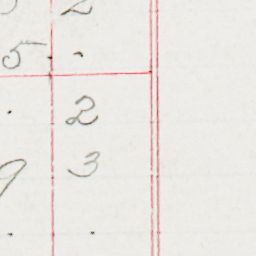 2
5 .
. 2
9 3
. .